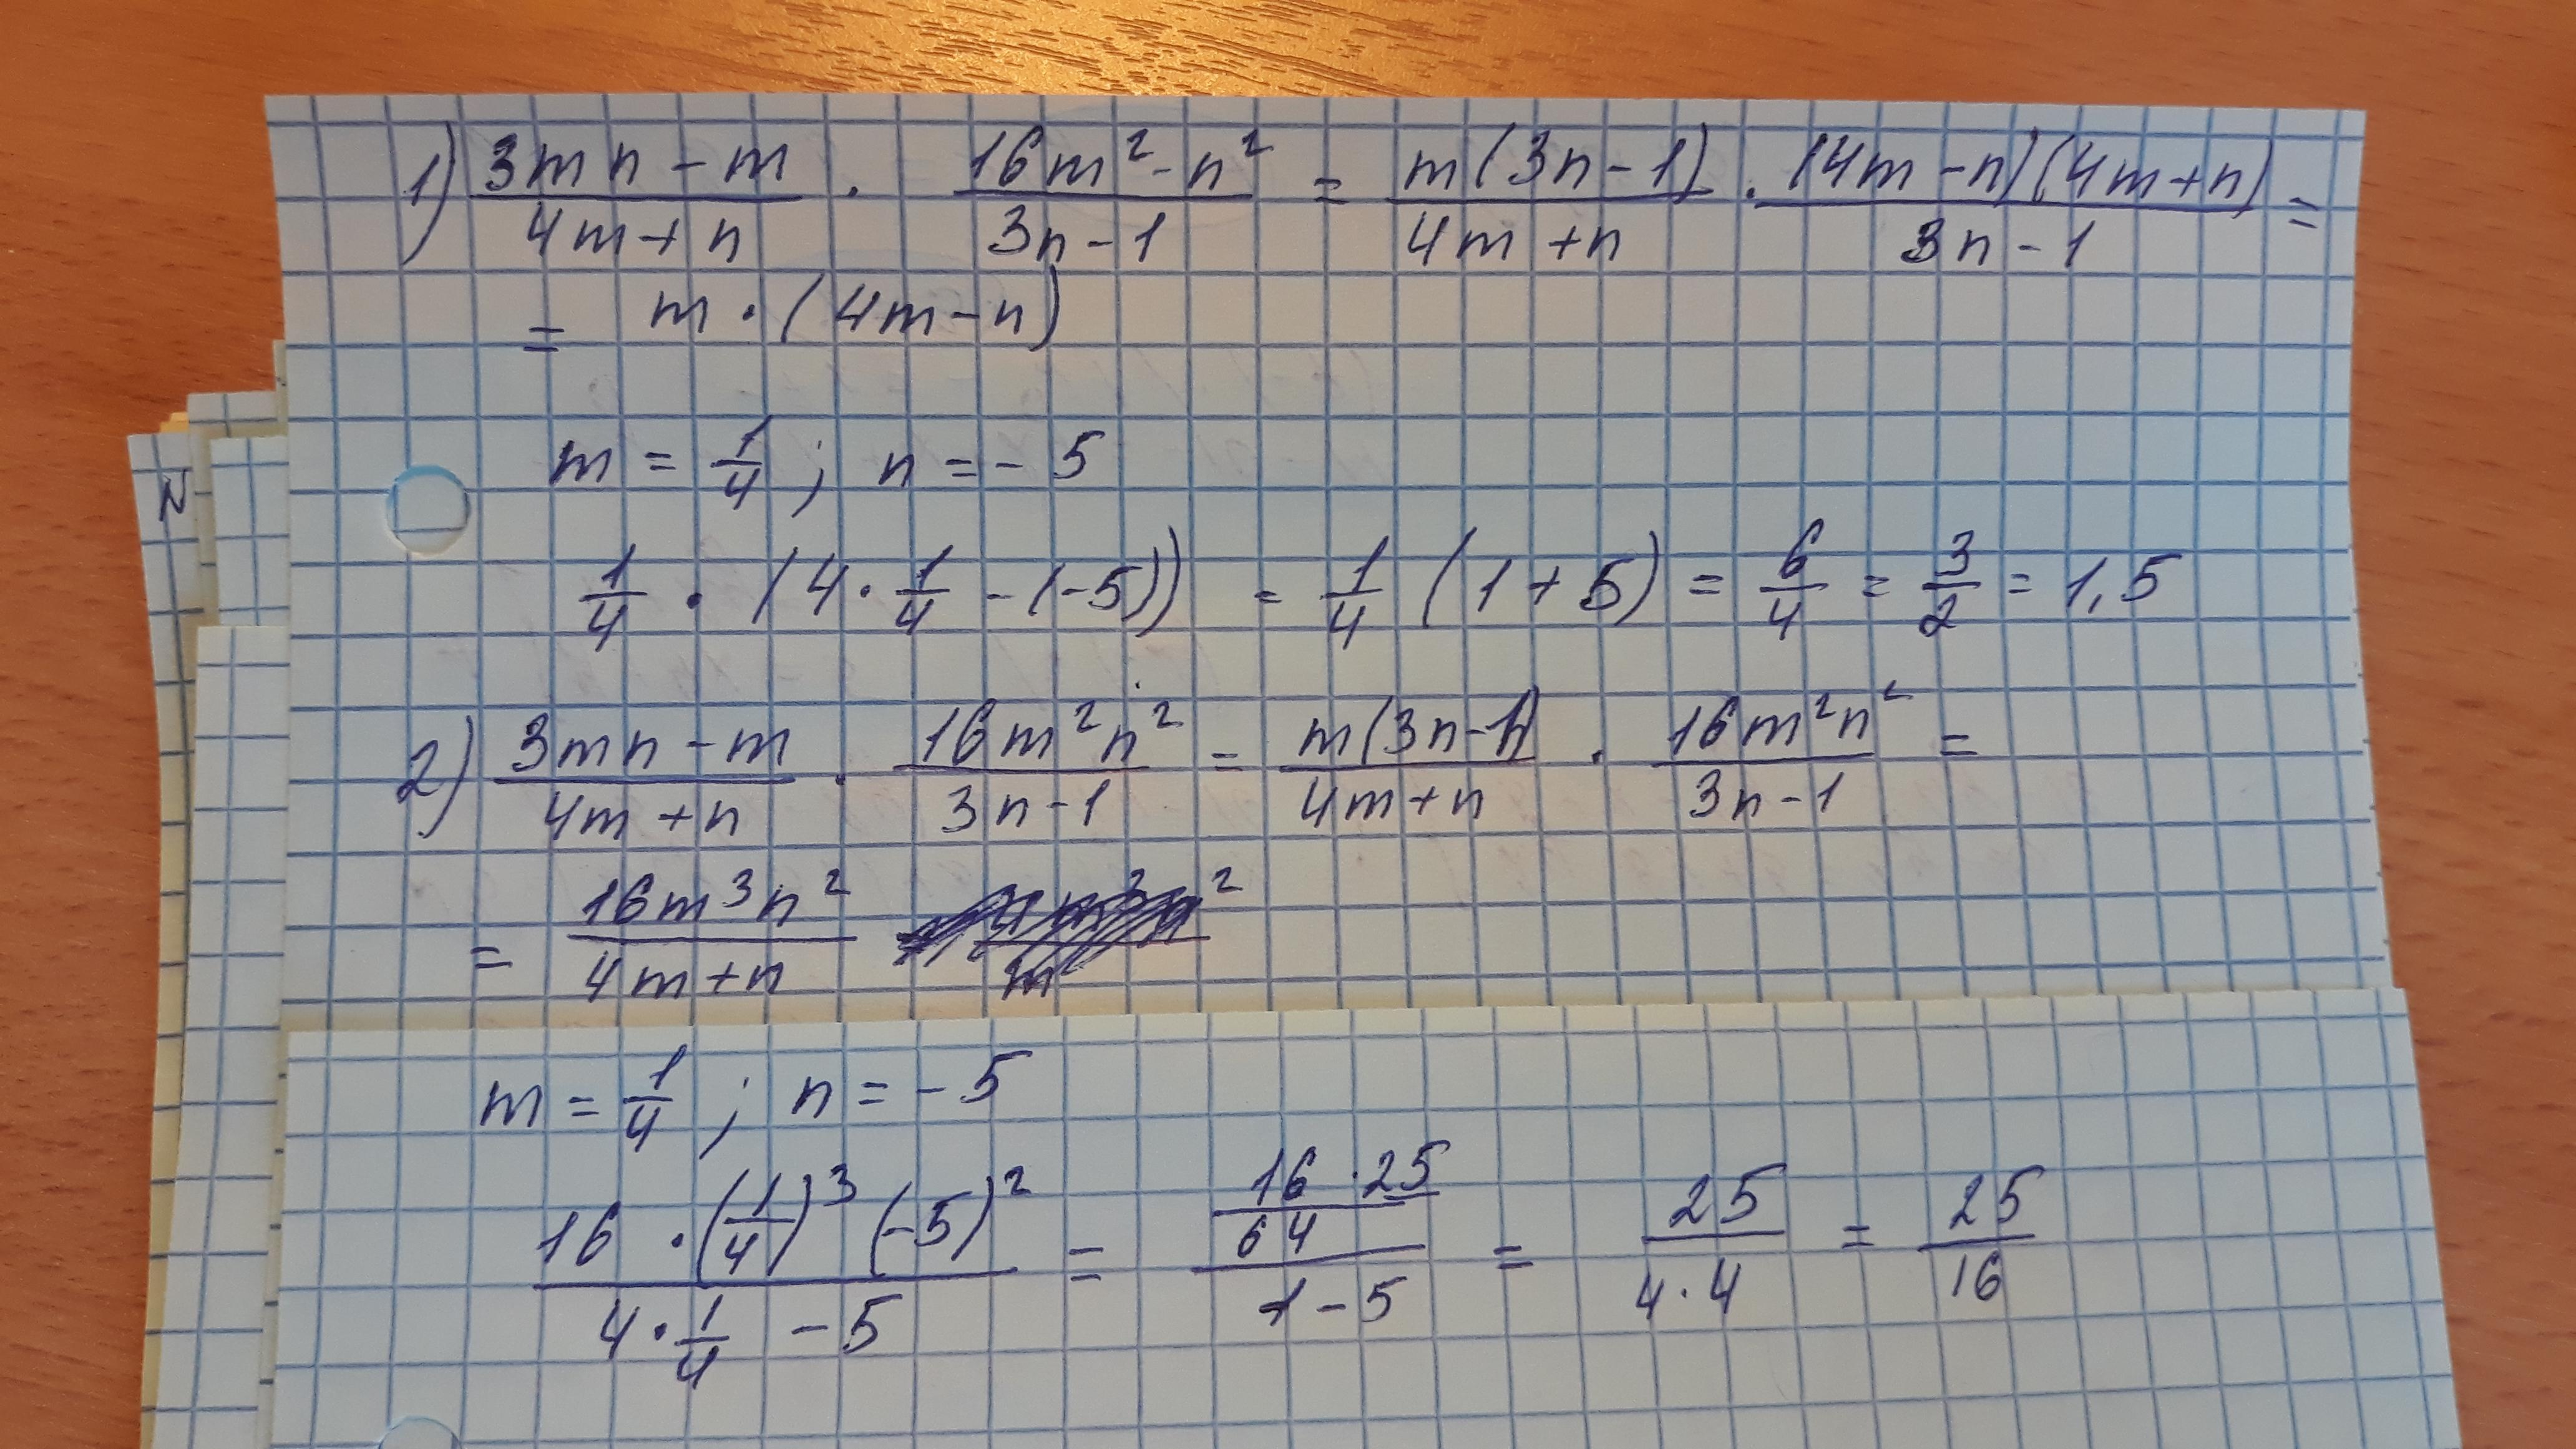 1) (3mn - m)/(4m + n) · (16m² - n²)/(3n - 1) = m(3n - 1)/(4m + n) · (4m - n)(4m + n)/(3n - 1) =
= m · (4m - n)
m = 1/4 ; n = - 5
N
1/4 · (4 · 1/4 - (-5)) = 1/4 (1 + 5) = 6/4 = 3/2 = 1,5
2) (3mn - m)/(4m + n) · 16m²n²/(3n - 1) = m(3n - 1)/(4m + n) · 16m²n²/(3n - 1) =
= 16m³n²/(4m + n)
m = 1/4 ; n = - 5
(16 · (1/4)³ (-5)²)/(4 · 1/4 - 5) = (16 · 25/64)/(1 - 5) = 25/(4 · 4) = 25/16